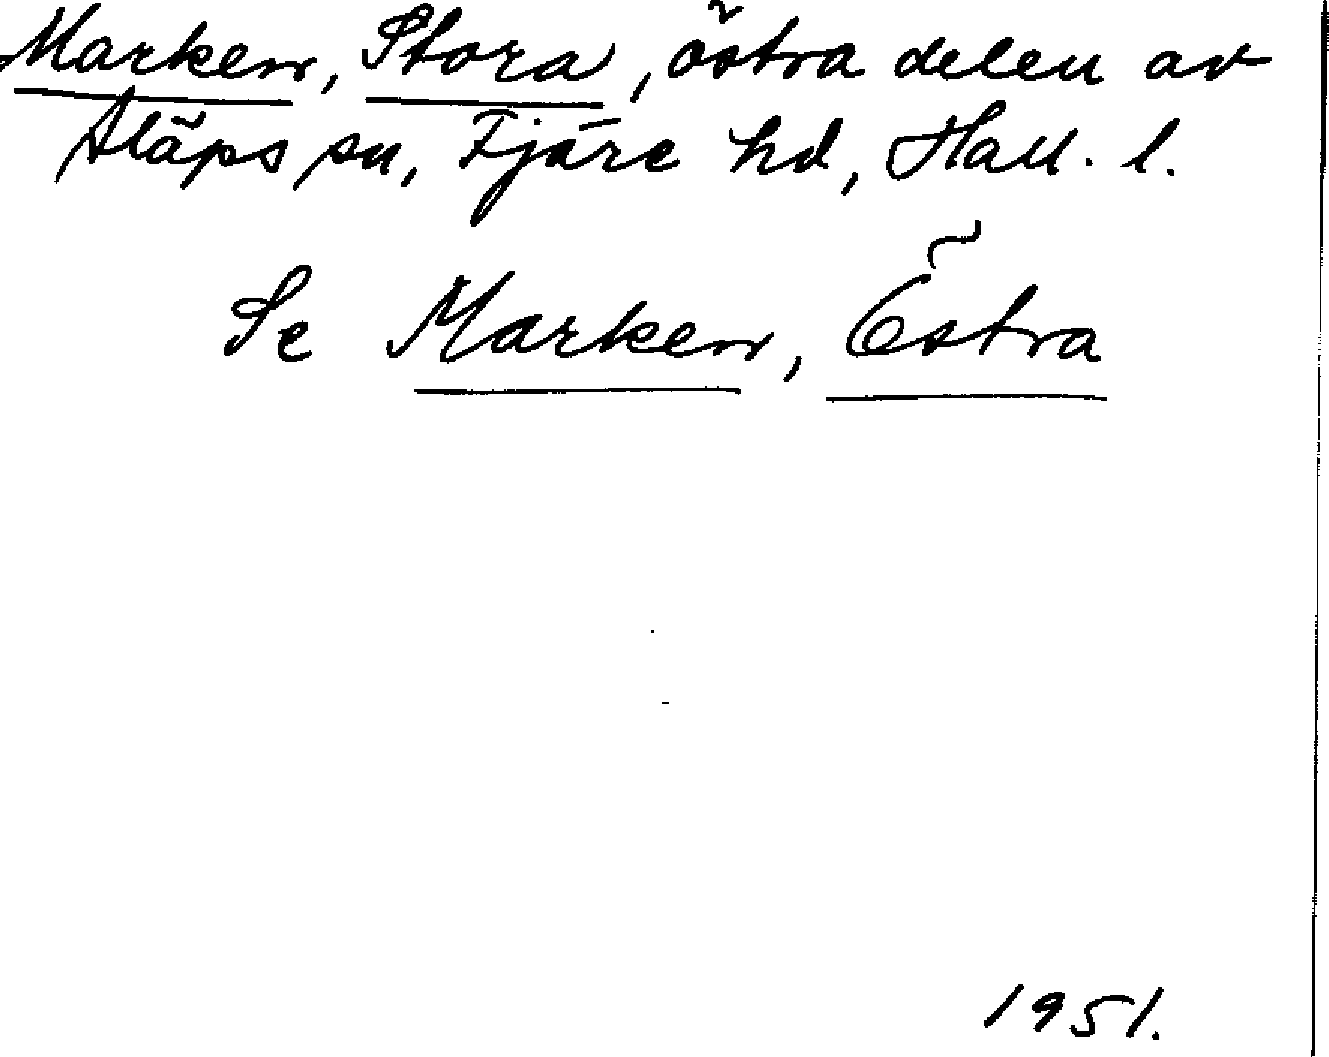 Marken, Stora, östra delen av
Släps sn, Fjäre hd, Hall. l.
Se Marken, Östra
1951.